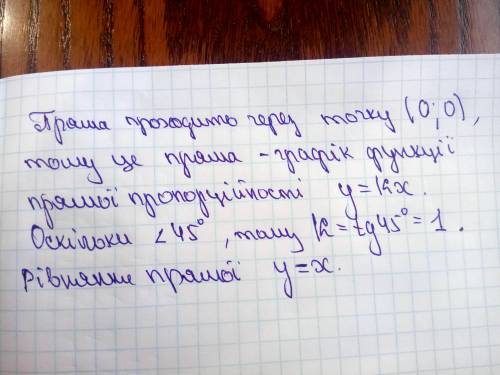 Пряма проходить через точку (0;0),
тому це пряма - графік функції
прямої пропорційності y=kx.
Оскільки ∠45°, тому k=tg45°=1.
Рівняння прямої y=x.